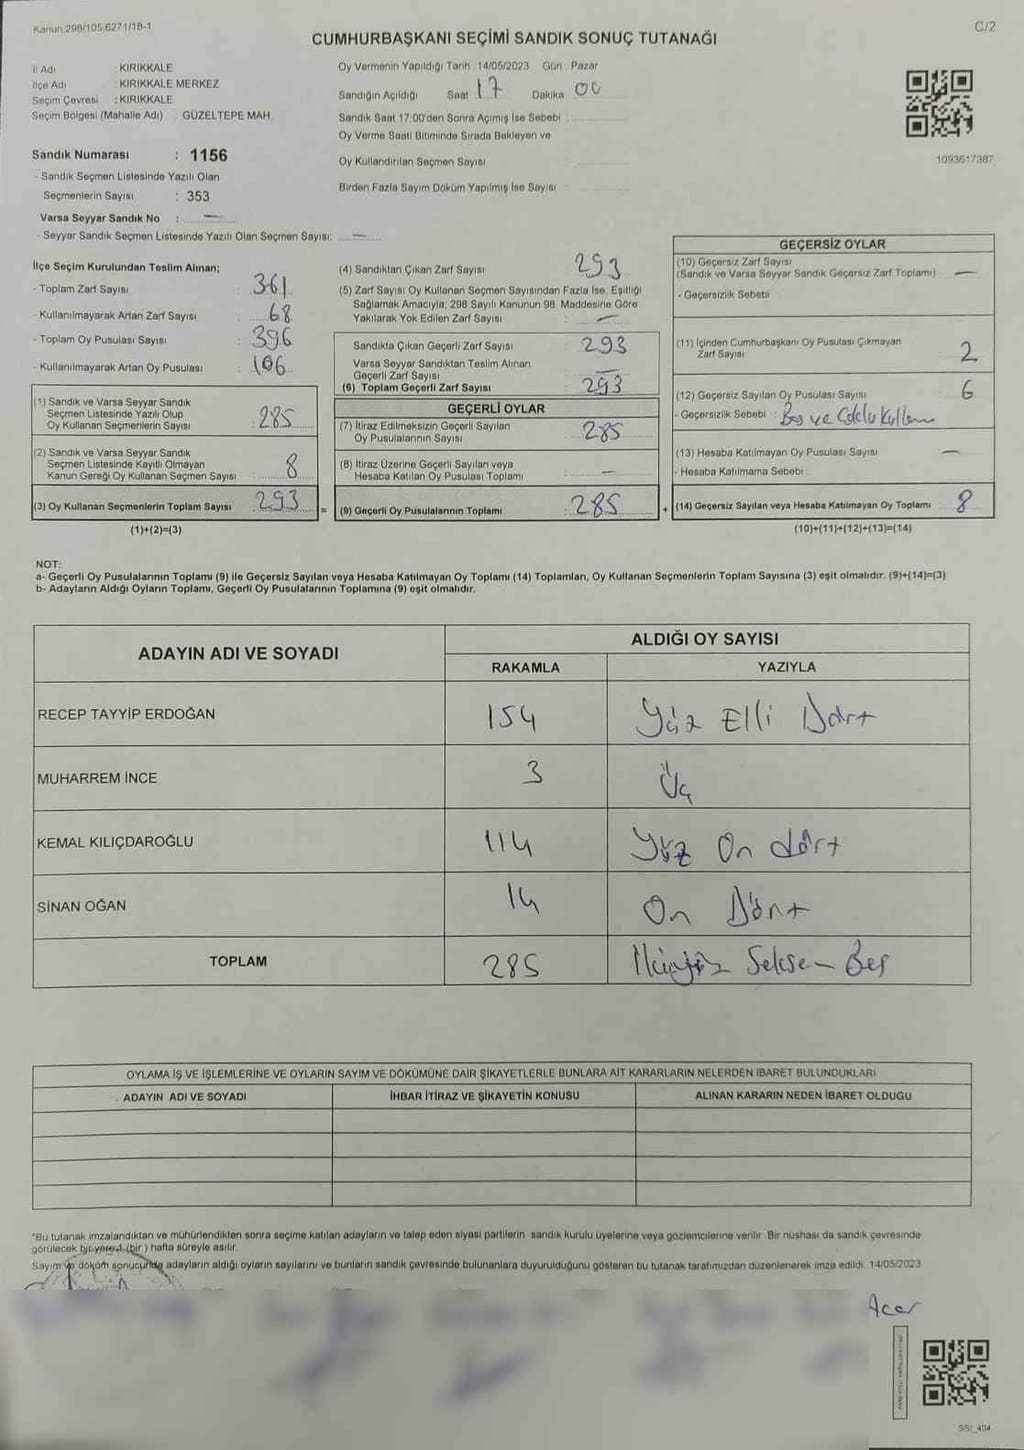 Kanun 298/105,6271/18-1
C/2
CUMHURBAŞKANI SEÇİMİ SANDIK SONUÇ TUTANAĞI
İl Adı : KIRIKKALE
İlçe Adı : KIRIKKALE MERKEZ
Seçim Çevresi : KIRIKKALE
Seçim Bölgesi (Mahalle Adı) : GÜZELTEPE MAH.
Sandık Numarası : 1156
- Sandık Seçmen Listesinde Yazılı Olan
Seçmenlerin Sayısı : 353
Varsa Seyyar Sandık No : —
- Seyyar Sandık Seçmen Listesinde Yazılı Olan Seçmen Sayısı: —
Oy Vermenin Yapıldığı Tarih : 14/05/2023 Gün : Pazar
Sandığın Açıldığı Saat 17 Dakika 00
Sandık Saat 17:00'den Sonra Açımış İse Sebebi :
Oy Verme Saati Bitiminde Sırada Bekleyen ve
Oy Kullandırılan Seçmen Sayısı
Birden Fazla Sayım Döküm Yapılmış İse Sayısı :
1093617387
İlçe Seçim Kurulundan Teslim Alınan;
- Toplam Zarf Sayısı : 361
- Kullanılmayarak Artan Zarf Sayısı : 68
- Toplam Oy Pusulası Sayısı : 396
- Kullanılmayarak Artan Oy Pusulası : 106
(1) Sandık ve Varsa Seyyar Sandık
Seçmen Listesinde Yazılı Olup
Oy Kullanan Seçmenlerin Sayısı : 285
(2) Sandık ve Varsa Seyyar Sandık
Seçmen Listesinde Kayıtlı Olmayan
Kanun Gereği Oy Kullanan Seçmen Sayısı : 8
(3) Oy Kullanan Seçmenlerin Toplam Sayısı : 293 =
(1)+(2)=(3)
(4) Sandıktan Çıkan Zarf Sayısı 293
(5) Zarf Sayısı Oy Kullanan Seçmen Sayısından Fazla İse, Eşitliği
Sağlamak Amacıyla; 298 Sayılı Kanunun 98. Maddesine Göre
Yakılarak Yok Edilen Zarf Sayısı : —
Sandıkta Çıkan Geçerli Zarf Sayısı : 293
Varsa Seyyar Sandıktan Teslim Alınan
Geçerli Zarf Sayısı : —
(6) Toplam Geçerli Zarf Sayısı : 293
GEÇERLİ OYLAR
(7) İtiraz Edilmeksizin Geçerli Sayılan
Oy Pusulalarının Sayısı : 285
(8) İtiraz Üzerine Geçerli Sayılan veya
Hesaba Katılan Oy Pusulası Toplamı : —
(9) Geçerli Oy Pusulalarının Toplamı : 285 +
GEÇERSİZ OYLAR
(10) Geçersiz Zarf Sayısı
(Sandık ve Varsa Seyyar Sandık Geçersiz Zarf Toplamı) —
- Geçersizlik Sebebi
(11) İçinden Cumhurbaşkanı Oy Pusulası Çıkmayan
Zarf Sayısı 2
(12) Geçersiz Sayılan Oy Pusulası Sayısı 6
- Geçersizlik Sebebi : Boş ve
(13) Hesaba Katılmayan Oy Pusulası Sayısı —
- Hesaba Katılmama Sebebi :
(14) Geçersiz Sayılan veya Hesaba Katılmayan Oy Toplamı 8
(10)+(11)+(12)+(13)=(14)
NOT:
a- Geçerli Oy Pusulalarının Toplamı (9) ile Geçersiz Sayılan veya Hesaba Katılmayan Oy Toplamı (14) Toplamları, Oy Kullanan Seçmenlerin Toplam Sayısına (3) eşit olmalıdır. (9)+(14)=(3)
b- Adayların Aldığı Oyların Toplamı, Geçerli Oy Pusulalarının Toplamına (9) eşit olmalıdır.
ADAYIN ADI VE SOYADI
ALDIĞI OY SAYISI
RAKAMLA YAZIYLA
RECEP TAYYİP ERDOĞAN 154 Yüz Elli Dört
MUHARREM İNCE 3 Üç
KEMAL KILIÇDAROĞLU 114 Yüz On dört
SİNAN OĞAN 14 On Dört
TOPLAM 285 İkiyüz Seksen Beş
OYLAMA İŞ VE İŞLEMLERİNE VE OYLARIN SAYIM VE DÖKÜMÜNE DAİR ŞİKAYETLERLE BUNLARA AİT KARARLARIN NELERDEN İBARET BULUNDUKLARI
ADAYIN ADI VE SOYADI İHBAR İTİRAZ VE ŞİKAYETİN KONUSU ALINAN KARARIN NEDEN İBARET OLDUĞU
*Bu tutanak imzalandıktan ve mühürlendikten sonra seçime katılan adayların ve talep eden siyasi partilerin sandık kurulu üyelerine veya gözlemcilerine verilir. Bir nüshası da sandık çevresinde
görülecek bir yere 1 (bir) hafta süreyle asılır.
Sayım ve döküm sonucunda adayların aldığı oyların sayılarını ve bunların sandık çevresinde bulunanlara duyurulduğunu gösteren bu tutanak tarafımızdan düzenlenerek imza edildi. 14/05/2023
Acar
SSI_404